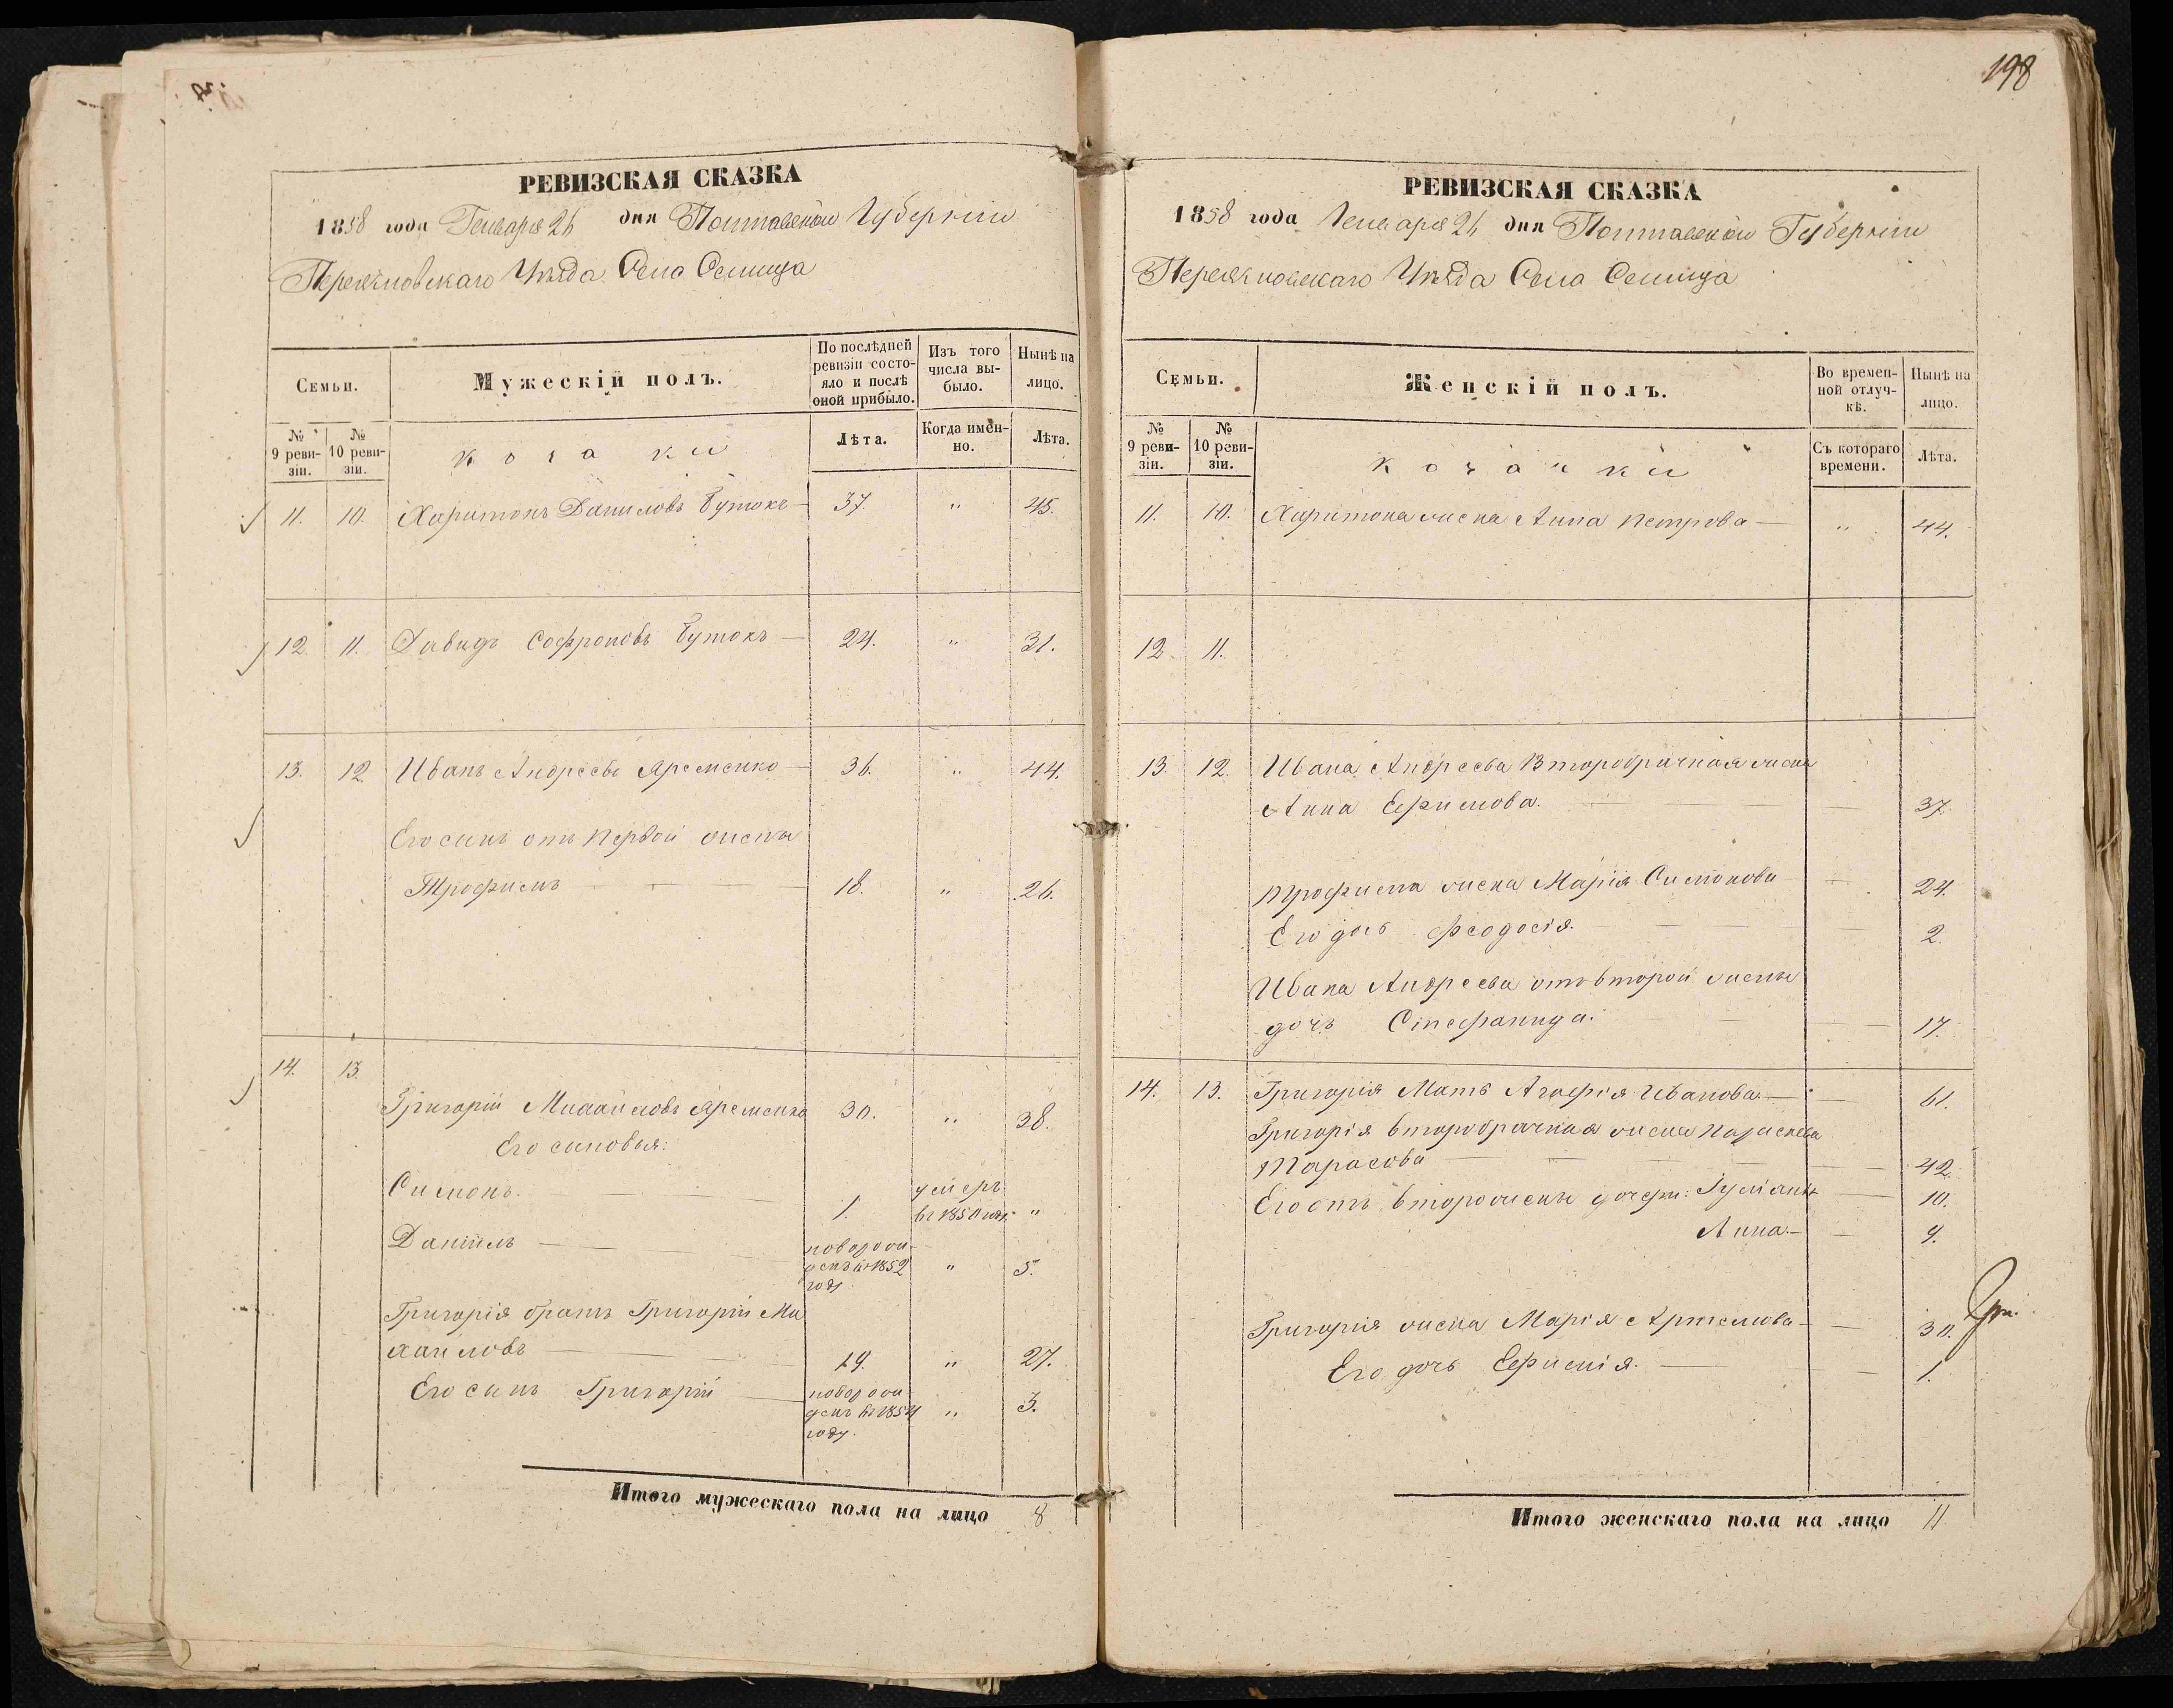 РЕВИЗСКАЯ СКАЗКА
1858 года Генваря 26 дня Полтавской Губерніи
Переяславскаго Уѣзда Села Семища
Семьи.
Мужескій полъ.
По послѣдней ревизіи состояло и послѣ оной прибыло.
Изъ того числа выбыло.
Нынѣ на лицо.
№ 9 ревизіи.
№ 10 ревизіи.
козаки
Лѣта.
Когда именно.
Лѣта.
11. 10. Харитонъ Даниловъ Бутокъ — 37. " 45.
12. 11. Давидъ Софроновъ Бутокъ — 24. " 31.
13. 12. Иванъ Андреевъ Яременко — 36. " 44.
Его сынъ отъ первой жены
Трофимъ — 18. " 26.
14. 13.
Григорій Михайловъ Яременко 30. " 38.
Его сыновья:
Симонъ. — 1. умеръ въ 1850 году "
Даніилъ — новорожденъ въ 1852 году " 5.
Григорія братъ Григорій Ми
хайловъ — 19. " 27.
Его сынъ Григорій — новорожденъ въ 1854 году. " 3.
Итого мужескаго пола на лицо 8
198
РЕВИЗСКАЯ СКАЗКА
1858 года Генваря 26 дня Полтавской Губерніи
Переяславскаго Уѣзда Села Семища
Семьи.
Женскій полъ.
Во временной отлучкѣ.
Нынѣ на лицо.
№ 9 ревизіи.
№ 10 ревизіи.
козачки
Съ котораго времени.
Лѣта.
11. 10. Харитона жена Анна Петрова — " 44.
12. 11.
13. 12. Ивана Андреева Второбрачная жена
Анна Ефимова. — 37.
Трофима жена Марія Симонова — 24.
Его дочь Феодосія. — 2.
Ивана Андреева отъ второй жены
дочь Стефанида. — 17.
14. 13. Григорія Мать Агафія Иванова. — 61.
Григорія второбрачная жена Параскева
Тарасова — 42.
Его отъ второй жены дочери: Гуліанія — 10.
Анна. — 9.
Григорія жена Марія Артемова — 30.
Его дочь Ефимія. — 1.
Итого женскаго пола на лицо 11